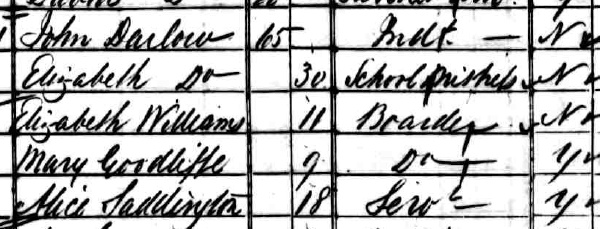 John Darlow 65 Indt. — N
Elizabeth Do 30 School N
Elizabeth Williams 11 Boarder N
Mary Goodliffe 9 Do Y
Alice Saddington 18 Serv Y